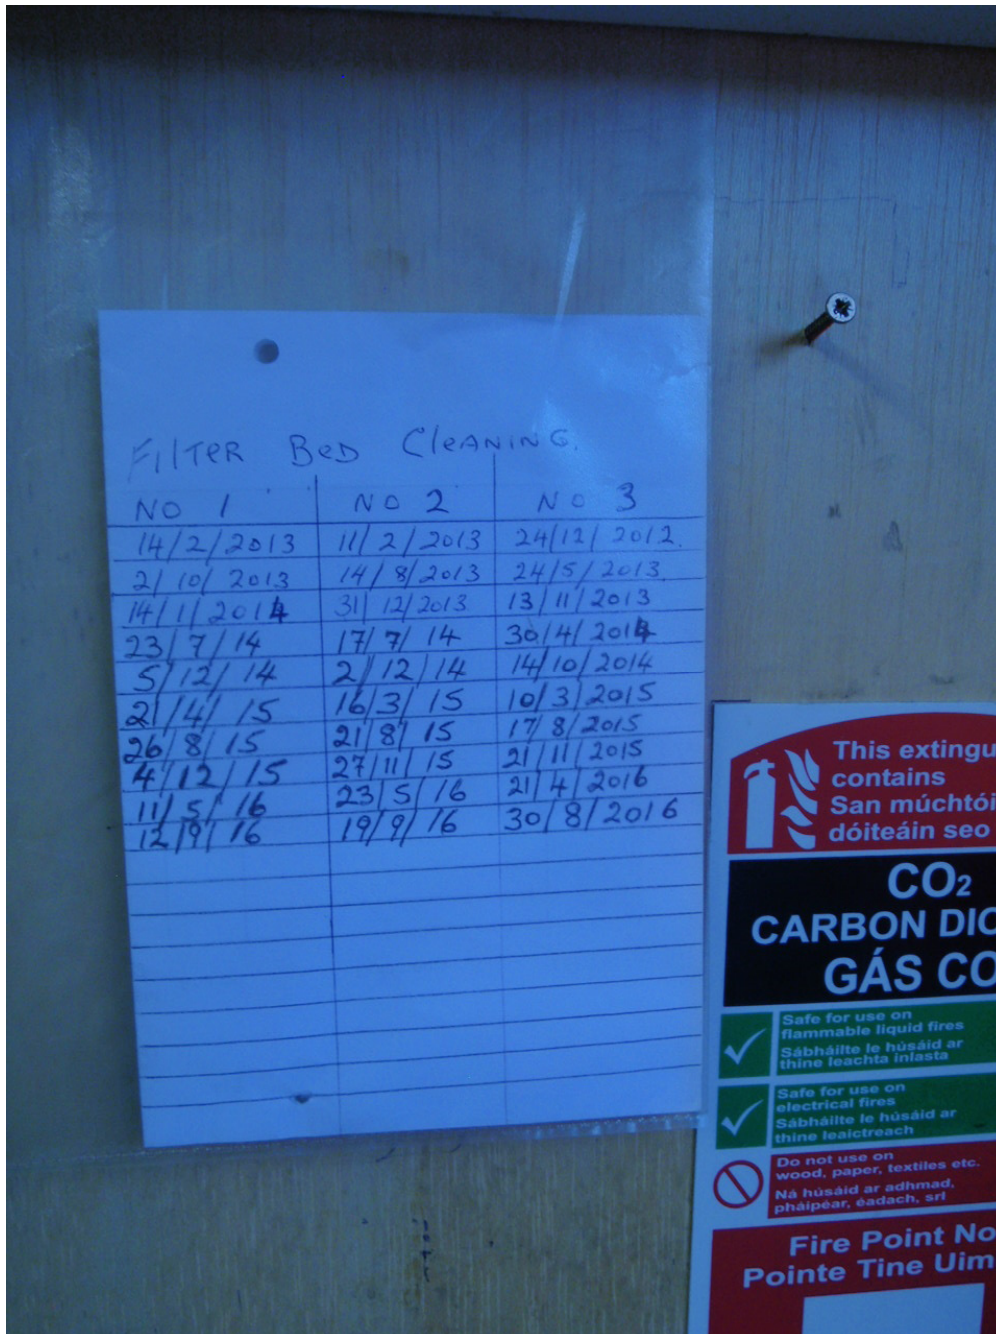 FILTER BED CleANING.
NO 1 NO 2 NO 3
14/2/2013 11/2/2013 24/12/2012.
2/10/2013 14/8/2013 24/5/2013.
14/1/2014 31/12/2013 13/11/2013
23/7/14 17/7/14 30/4/2014
5/12/14 2/12/14 14/10/2014
21/4/15 16/3/15 10/3/2015
26/8/15 21/8/15 17/8/2015
4/12/15 27/11/15 21/11/2015
11/5/16 23/5/16 21/4/2016
12/9/16 19/9/16 30/8/2016
This extingu
contains
San múchtói
dóiteáin seo
CO₂
CARBON DIO
GÁS CO
Safe for use on
flammable liquid fires
Sábháilte le húsáid ar
thine leachta inlasta
Safe for use on
electrical fires
Sábháilte le húsáid ar
thine leaictreach
Do not use on
wood, paper, textiles etc.
Ná húsáid ar adhmad,
pháipéar, éadach, srl
Fire Point No
Pointe Tine Uim